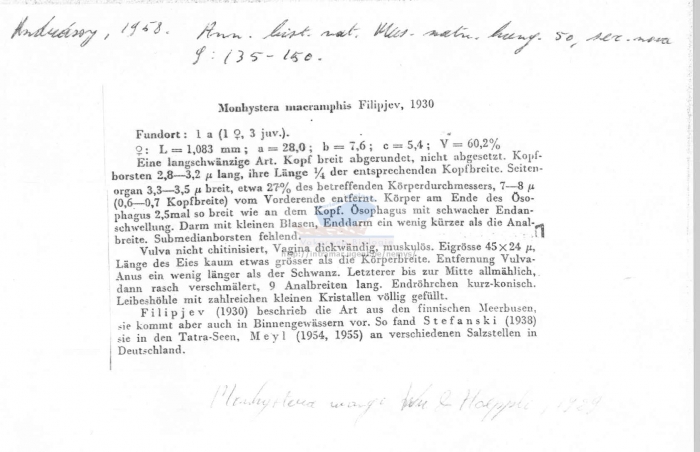 Andrássy, 1958. Ann. hist. nat. Mus. natn. hung. 50, ser. nova
9: 135-150.
Monhystera macramphis Filipjev, 1930
Fundort: 1 a (1 ♀, 3 juv.).
♀: L = 1,083 mm; a = 28,0; b = 7,6; c = 5,4; V = 60,2%
Eine langschwänzige Art. Kopf breit abgerundet, nicht abgesetzt. Kopf-
borsten 2,8—3,2 μ lang, ihre Länge ¼ der entsprechenden Kopfbreite. Seiten-
organ 3,3—3,5 μ breit, etwa 27% des betreffenden Körperdurchmessers, 7—8 μ
(0,6—0,7 Kopfbreite) vom Vorderende entfernt. Körper am Ende des Öso-
phagus 2,5mal so breit wie an dem Kopf. Ösophagus mit schwacher Endan-
schwellung. Darm mit kleinen Blasen, Enddarm ein wenig kürzer als die Anal-
breite. Submedianborsten fehlend.
Vulva nicht chitinisiert, Vagina dickwändig, muskulös. Eigrösse 45×24 μ,
Länge des Eies kaum etwas grösser als die Körperbreite. Entfernung Vulva-
Anus ein wenig länger als der Schwanz. Letzterer bis zur Mitte allmählich,
dann rasch verschmälert, 9 Analbreiten lang. Endröhrchen kurz-konisch.
Leibeshöhle mit zahlreichen kleinen Kristallen völlig gefüllt.
Filipjev (1930) beschrieb die Art aus den finnischen Meerbusen,
sie kommt aber auch in Binnengewässern vor. So fand Stefanski (1938)
sie in den Tatra-Seen, Meyl (1954, 1955) an verschiedenen Salzstellen in
Deutschland.
Monhystera & Hoeppli, 1929